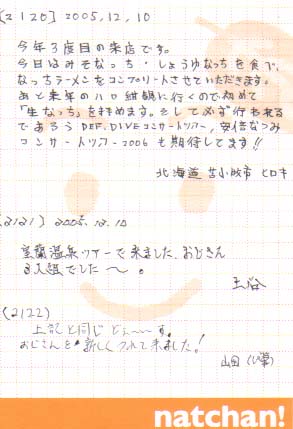 (2120) 2005.12.10
今年3度目の来店です。
今日はみそなっち・しょうゆなっちを食べ、
なっちラーメンをコンプリートさせていただきます。
あと来年のハロ紺綱に行くので初めて
「生なっち」をおがめます。そして必ず行われる
であろうDEF.DIVEコンサートツアー、安倍なつみ
コンサートツアー2006も期待してます!!
北海道 苫小牧市 ヒロキ
(2121) 2005.12.10
室蘭温泉ツアーで来ました、おじさん
3人組でした〜。
玉谷
(2122)
上記と同じでぇ〜〜す。
おじさんを新しくつれて来ました!
山田
natchan!